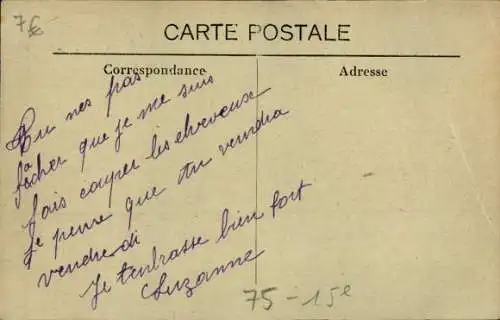 7€
CARTE POSTALE
Correspondance
Adresse
Tu nes pas
fâcher que je me suis
fais couper les cheveveux
Je pense que tu viendra
vendredi
Je t'embrasse bien fort
Suzanne
75-15e